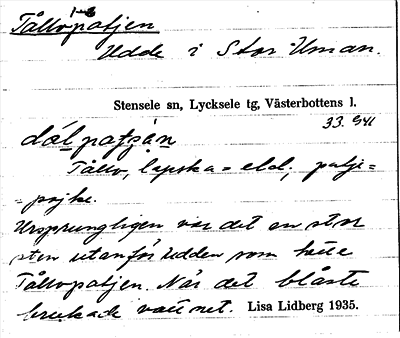 Tållopatjen
Udde i Stor-Uman.
Stensele sn, Lycksele tg, Västerbottens l.
33. G41
Tållo, lapska = eld; patje =
= pojke.
Ursprungligen var det en stor
sten utanför udden som hette
Tållopatjen. När det blåste
brukade vattnet. Lisa Lidberg 1935.